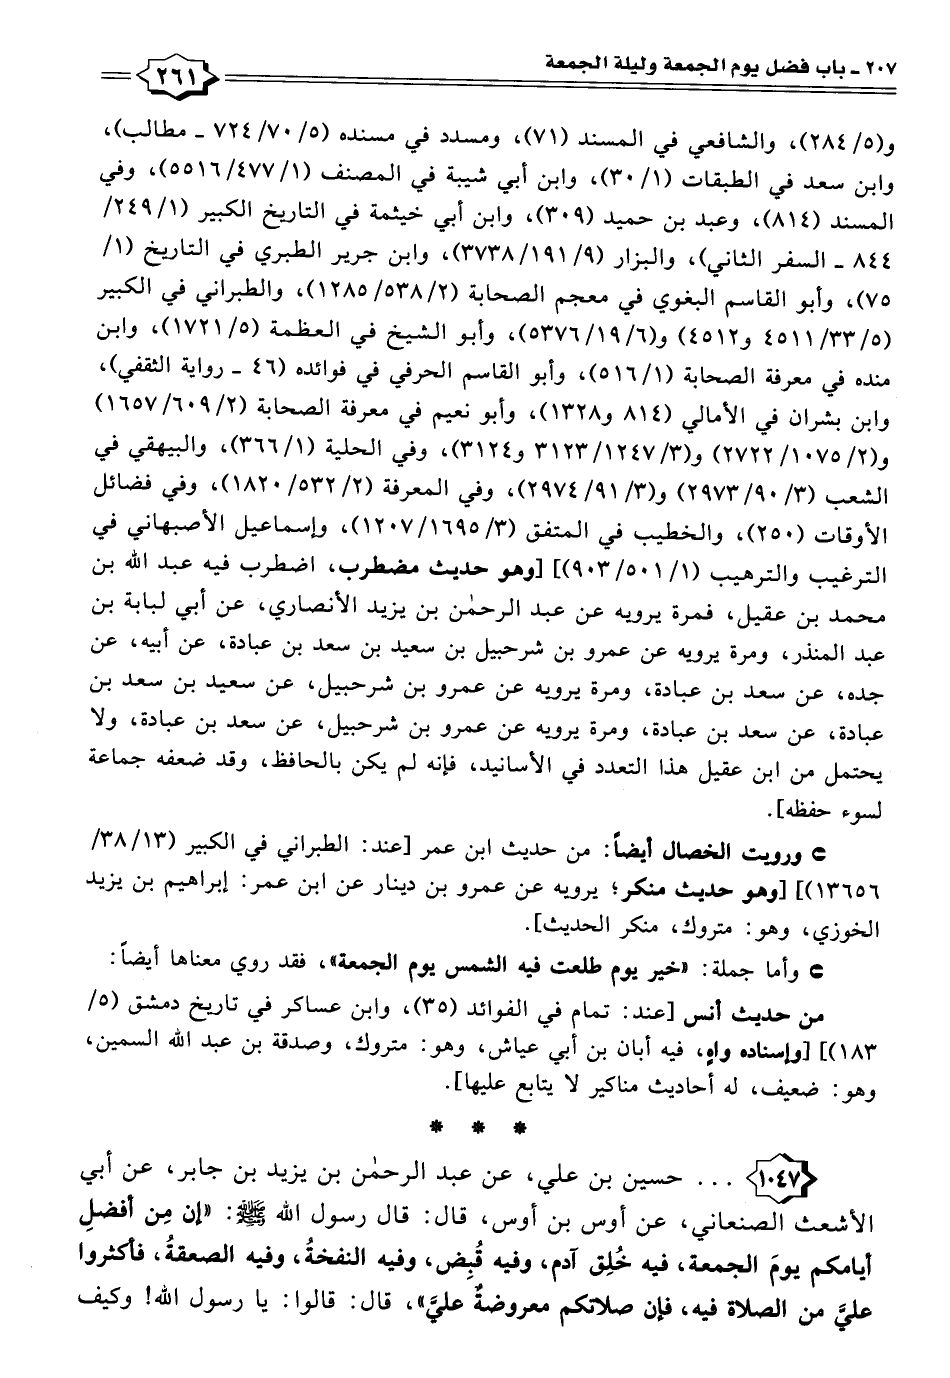 ٢٠٧ ـ باب فضل يوم الجمعة وليلة الجمعة
٢٦١
و(٥/ ٢٨٤)، والشافعي في المسند (٧١)، ومسدد في مسنده (٥/ ٧٠/ ٧٢٤ ـ مطالب)،
وابن سعد في الطبقات (١/ ٣٠)، وابن أبي شيبة في المصنف (١/ ٤٧٧/ ٥٥١٦)، وفي
المسند (٨١٤)، وعبد بن حميد (٣٠٩)، وابن أبي خيثمة في التاريخ الكبير (١/ ٢٤٩/
٨٤٤ ـ السفر الثاني)، والبزار (٩/ ١٩١/ ٣٧٣٨)، وابن جرير الطبري في التاريخ (١/
٧٥)، وأبو القاسم البغوي في معجم الصحابة (٢/ ٥٣٨/ ١٢٨٥)، والطبراني في الكبير
(٥/ ٣٣/ ٤٥١١ و٤٥١٢) و(٦/ ١٩/ ٥٣٧٦)، وأبو الشيخ في العظمة (٥/ ١٧٢١)، وابن
منده في معرفة الصحابة (١/ ٥١٦)، وأبو القاسم الحرفي في فوائده (٤٦ ـ رواية الثقفي)،
وابن بشران في الأمالي (٨١٤ و١٣٢٨)، وأبو نعيم في معرفة الصحابة (٢/ ٦٠٩/ ١٦٥٧)
و(٢/ ١٠٧٥/ ٢٧٢٢) و(٣/ ١٢٤٧/ ٣١٢٣ و٣١٢٤)، وفي الحلية (١/ ٣٦٦)، والبيهقي في
الشعب (٣/ ٩٠/ ٢٩٧٣) و(٣/ ٩١/ ٢٩٧٤)، وفي المعرفة (٢/ ٥٣٢/ ١٨٢٠)، وفي فضائل
الأوقات (٢٥٠)، والخطيب في المتفق (٣/ ١٦٩٥/ ١٢٠٧)، وإسماعيل الأصبهاني في
الترغيب والترهيب (١/ ٥٠١/ ٩٠٣)] [وهو حديث مضطرب، اضطرب فيه عبد الله بن
محمد بن عقيل، فمرة يرويه عن عبد الرحمٰن بن يزيد الأنصاري، عن أبي لبابة بن
عبد المنذر، ومرة يرويه عن عمرو بن شرحبيل بن سعيد بن سعد بن عبادة، عن أبيه، عن
جده، عن سعد بن عبادة، ومرة يرويه عن عمرو بن شرحبيل، عن سعيد بن سعد بن
عبادة، عن سعد بن عبادة، ومرة يرويه عن عمرو بن شرحبيل، عن سعد بن عبادة، ولا
يحتمل من ابن عقيل هذا التعدد في الأسانيد، فإنه لم يكن بالحافظ، وقد ضعفه جماعة
لسوء حفظه].
ورويت الخصال أيضاً: من حديث ابن عمر [عند: الطبراني في الكبير (١٣/ ٣٨/
١٣٦٥٦)] [وهو حديث منكر؛ يرويه عن عمرو بن دينار عن ابن عمر: إبراهيم بن يزيد
الخوزي، وهو: متروك، منكر الحديث].
وأما جملة: «خير يوم طلعت فيه الشمس يوم الجمعة»، فقد روي معناها أيضاً:
من حديث أنس [عند: تمام في الفوائد (٣٥)، وابن عساكر في تاريخ دمشق (٥/
١٨٣)] [وإسناده واهٍ، فيه أبان بن أبي عياش، وهو: متروك، وصدقة بن عبد الله السمين،
وهو: ضعيف، له أحاديث مناكير لا يتابع عليها].
* * *
١٠٤٧ ... حسين بن علي، عن عبد الرحمٰن بن يزيد بن جابر، عن أبي
الأشعث الصنعاني، عن أوس بن أوس، قال: قال رسول الله ﷺ: «إن مِن أفضلِ
أيامكم يومَ الجمعة، فيه خُلِق آدم، وفيه قُبِض، وفيه النفخةُ، وفيه الصعقةُ، فأكثروا
عليَّ من الصلاة فيه، فإن صلاتكم معروضةٌ عليَّ»، قال: قالوا: يا رسول الله! وكيف